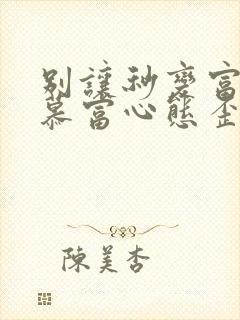 別讓秒變富
慕富心態歪
陳美杏